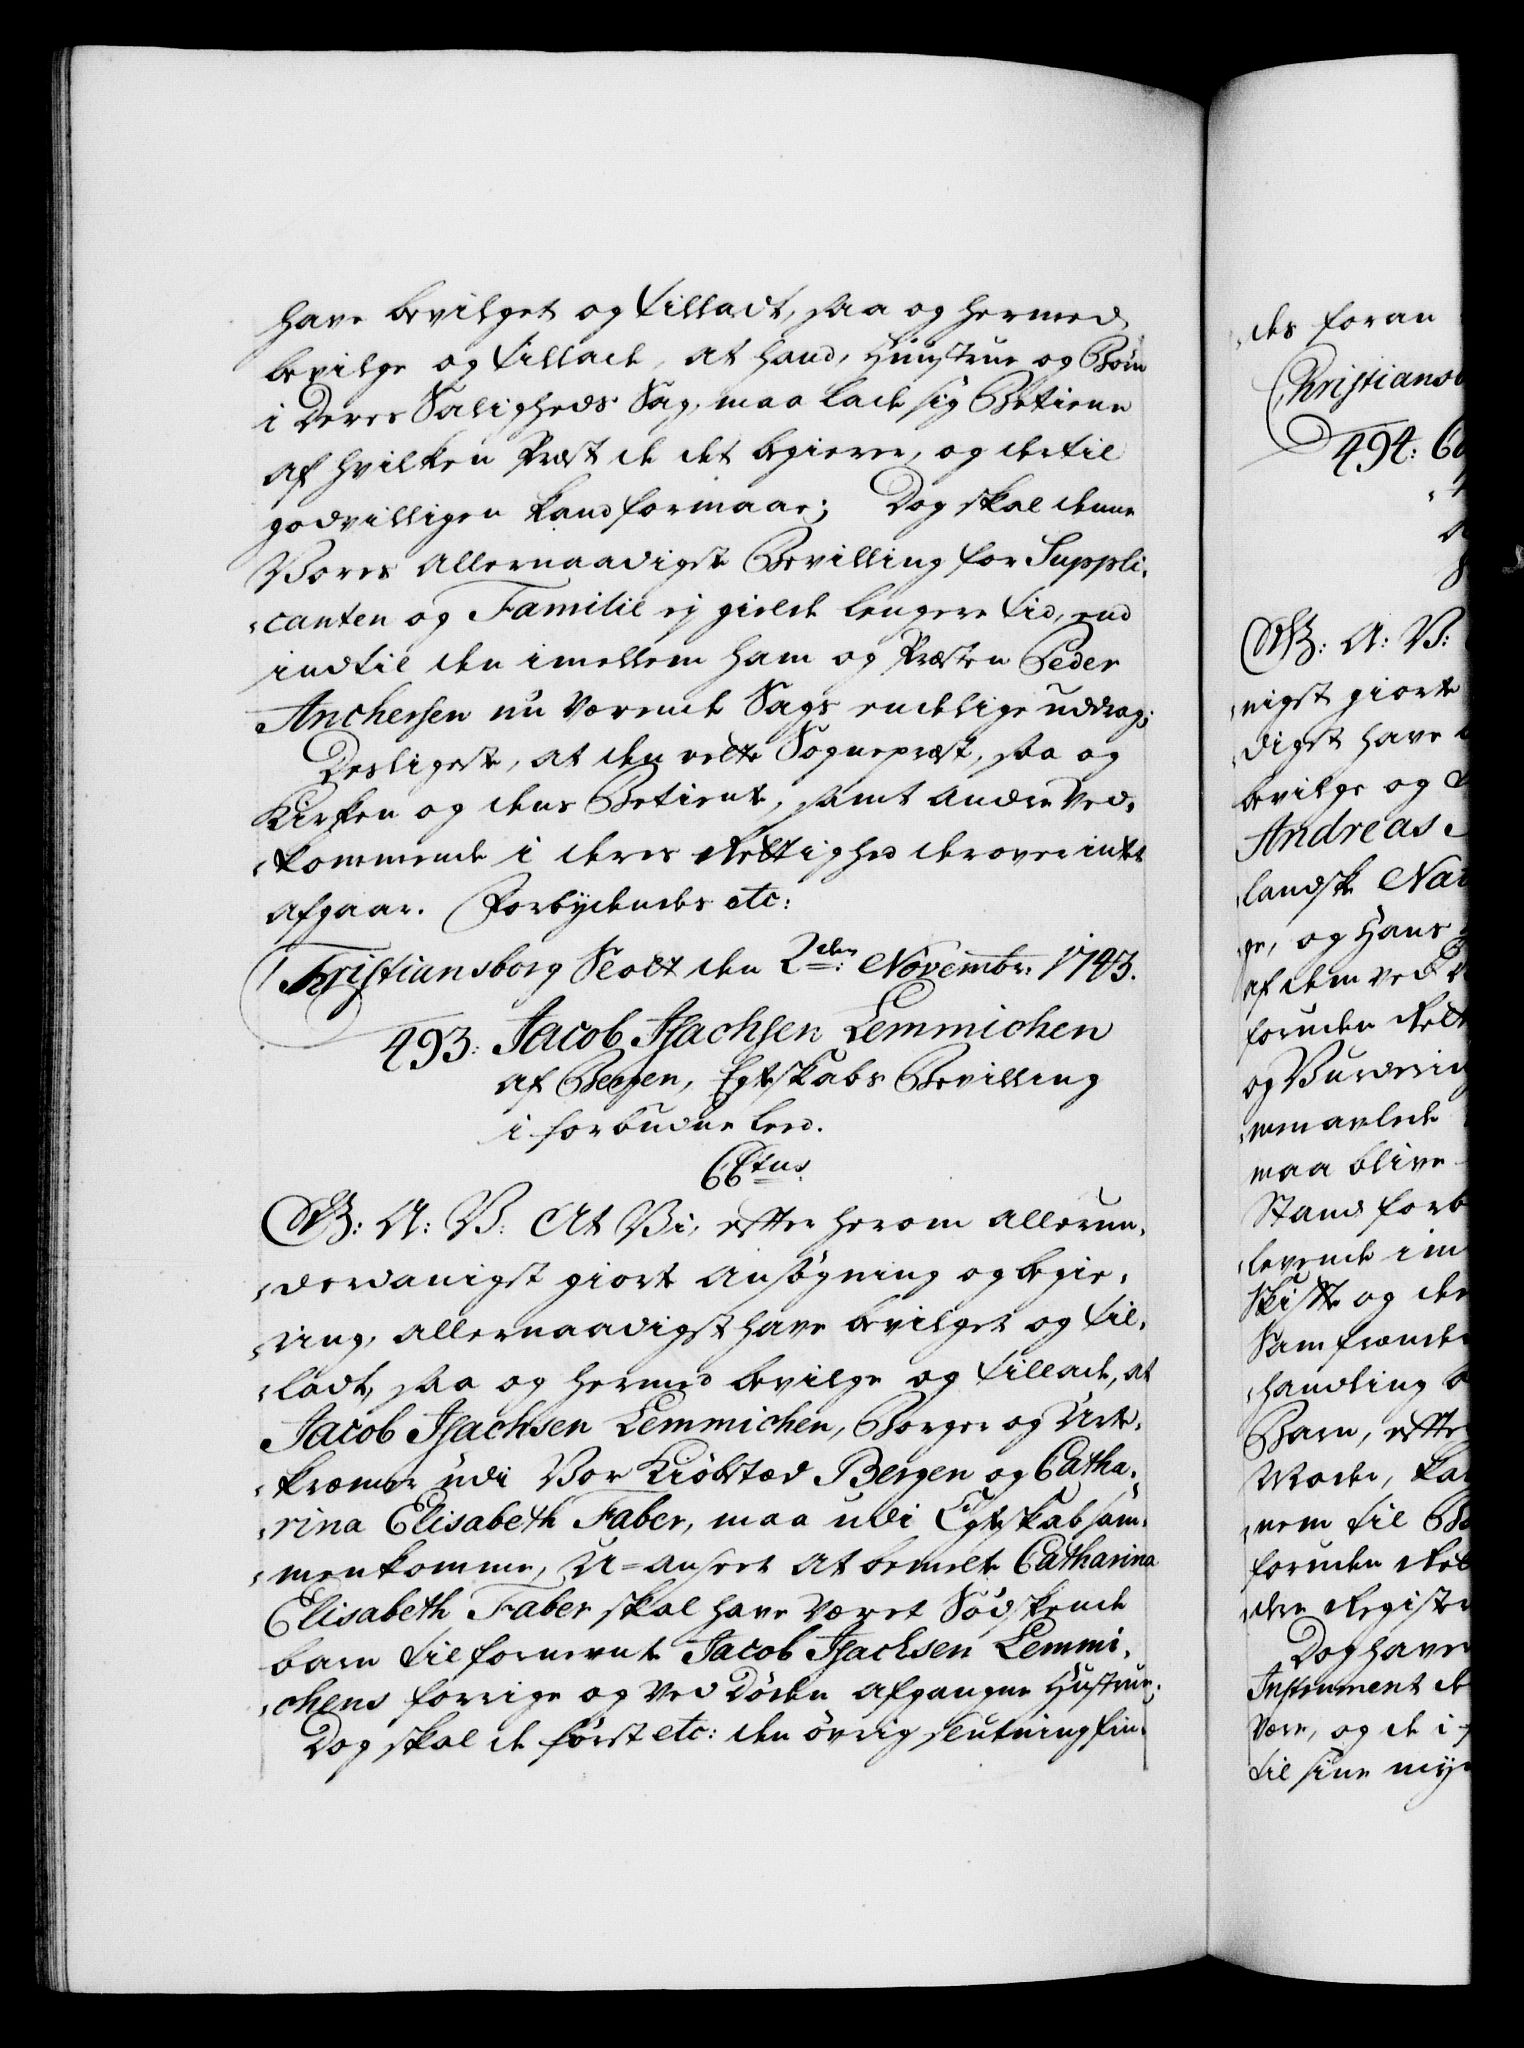 have bevilget og tilladt, saa og hermed
bevilge og tillade, at hand, Hustrue og Børn
i Deres Saligheds Sag, maa lade sig Betiene
af hvilken Præst de det begierer, og dertil
godvilligen kand formaae; Dog skal denne
Vores allernaadigste Bevilling for Suppli-
-canten og Familie ej gielde længere tid, end
indtil den imellem ham og Præsten Peder
Anchersen nu værende Sags endelige uddrag;
Desligeste, at den rette Sognepræst, saa og
Kirken og dens Betiente, samt andre Ved-
-kommende i deres Rettighed derover intet
afgaar. Forbydendes etc:
Christiansborg Slott den 2den: Novembr: 1743.
493: Jacob Isachsen Lemmichen
af Bergen, Egteskabs Bevilling
i forbudne Leed.
C6tus.
G: A: V: At Vi, efter herom allerun-
-derdanigst giorte Ansøgning og begie-
-ring, allernaadigst have bevilget og til-
-ladt, saa og hermed bevilge og tillade, at
Jacob Isachsen Lemmichen, Borger og Urte-
-kræmer udi Vor Kiøbstæd Bergen og Catha-
-rina Elisabeth Faber, maa udi Egteskab sam-
-menkomme, U-anseet at bemelte Catharina
Elisabeth Faber skal have været Sødskende
barn til fornevnte Jacob Isachsen Lemmi-
-chens forrige og ved Døden afgangne Hustrue;
Dog skal de først etc: den øvrig slutning fin-
-des foran
Christiansb
494:
G: A: V:
-nigst giorte
-digst have b
bevilge og t
Andreas
landske Nat
-ge, og Hans
af dem ved
foruden Rett
og Vurdering
-menavlede
maa blive
Stand forb
-levende im
Skifte og de
Samfrænde
-handling
Barn, efter
Maade, ka
-nem til
foruden Ret
-den Registe
Dog have
Instrument de
være, og de i
til sine myn